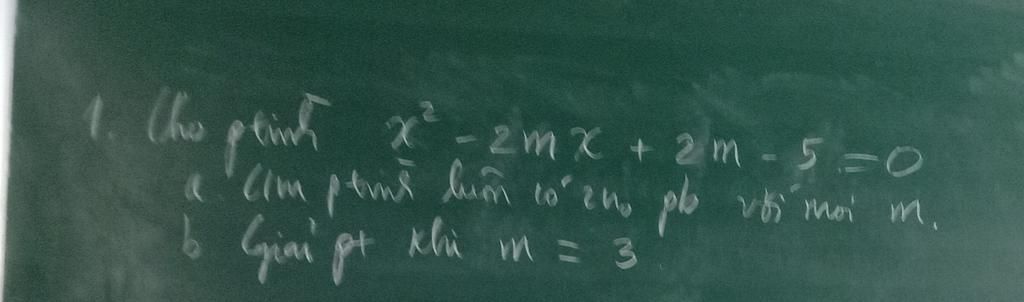 1. Cho ptrình x² - 2mx + 2m - 5 = 0
a. Cm ptrình luôn có 2no pb với mọi m.
b Giải pt khi m = 3